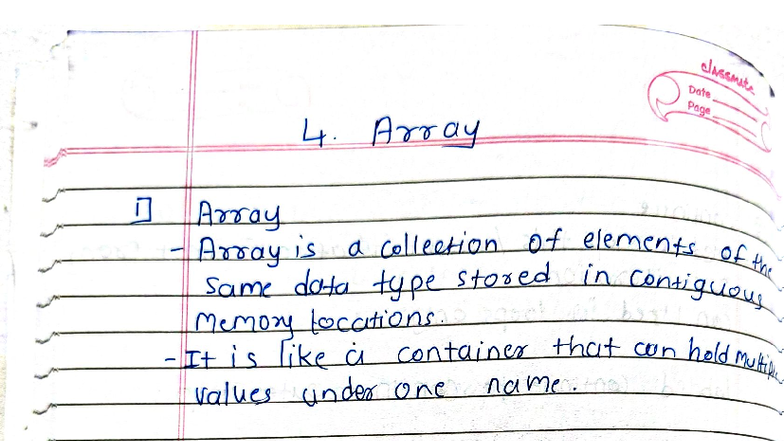 classmate
Date
Page
4. Array
1] Array
- Array is a collection of elements of the
same data type stored in contiguous
memory locations.
- It is like a container that can hold multiple
values under one name.